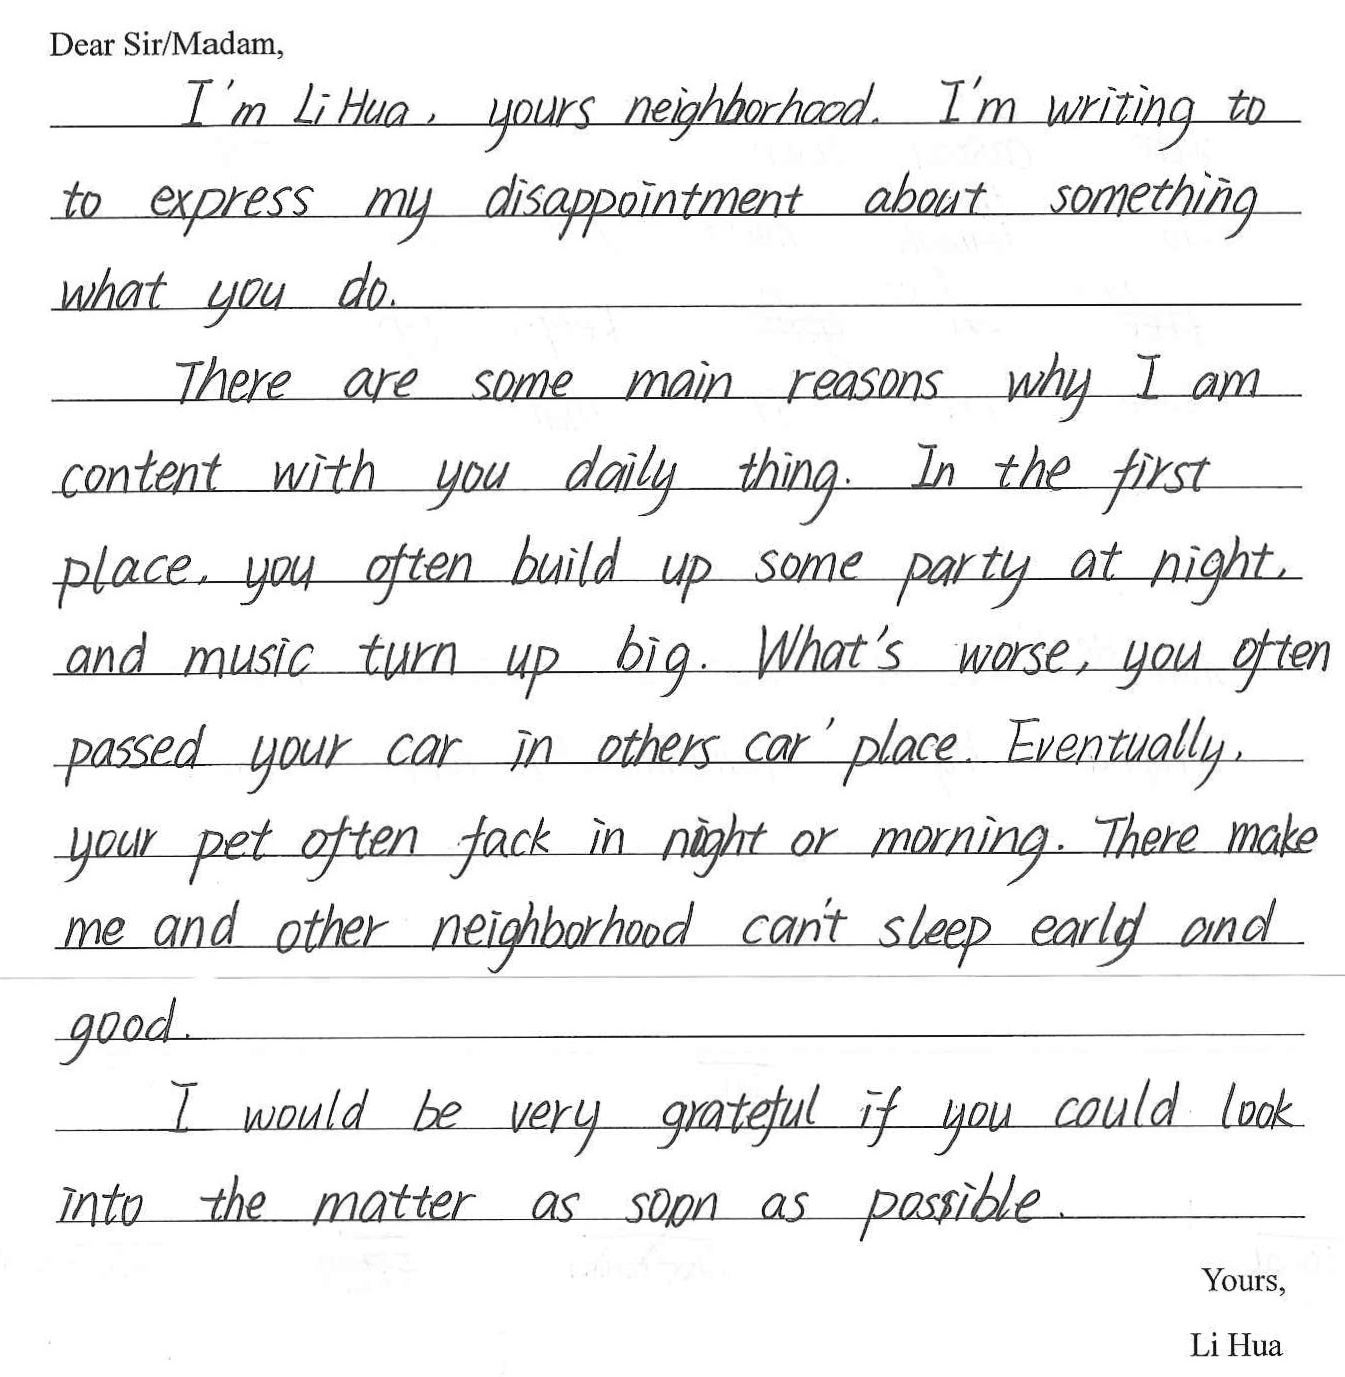 Dear Sir/Madam,
I'm Li Hua, yours neighborhood. I'm writing to
to express my disappointment about something
what you do.
There are some main reasons why I am
content with you daily thing. In the first
place, you often build up some party at night,
and music turn up big. What's worse, you often
passed your car in others car' place. Eventually,
your pet often fack in night or morning. There make
me and other neighborhood can't sleep early and
good.
I would be very grateful if you could look
into the matter as soon as possible.
Yours,
Li Hua